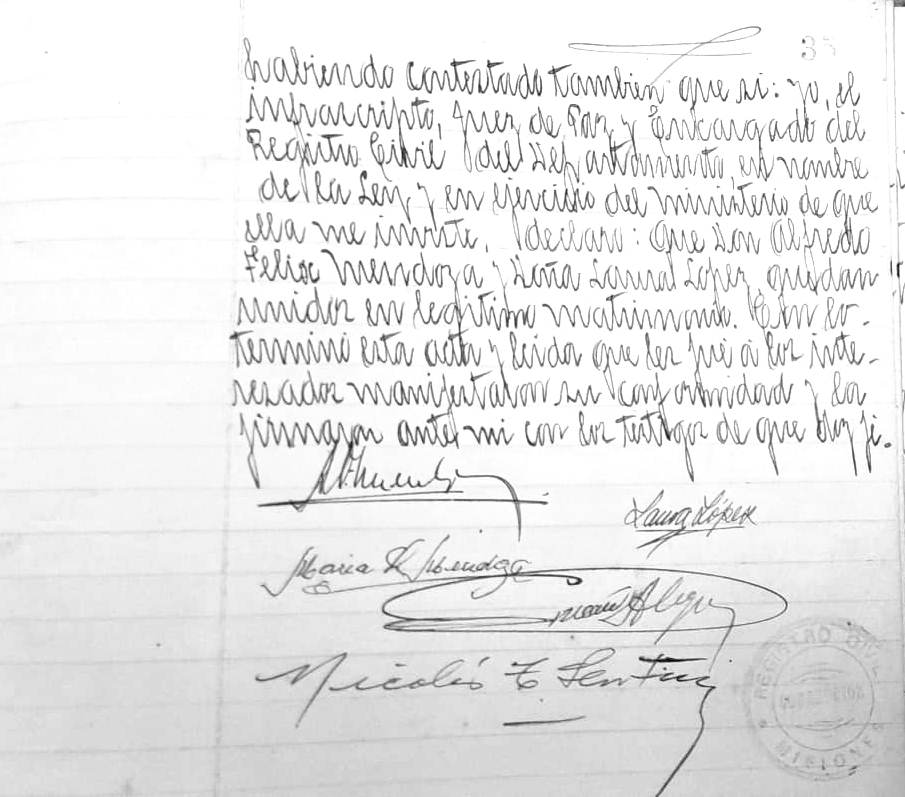 35
habiendo contestado tambien que si: yo, el
infrascripto, Juez de Paz y Encargado del
Registro Civil del Departamento, en nombre
de la Ley y en ejercicio del ministerio de que
ella me inviste, declaro: Que Don Alfredo
Felix Mendoza y Doña Laura Lopez, quedan
unidos en legitimo matrimonio. Con lo
terminó esta acta y leida que les fué á los inte-
resados manifestaron su conformidad y la
firmaron ante mi con los testigos de que doy fé.
Laura López
Maria Mendoza
Nicolás
REGISTRO CIVIL
MISIONES